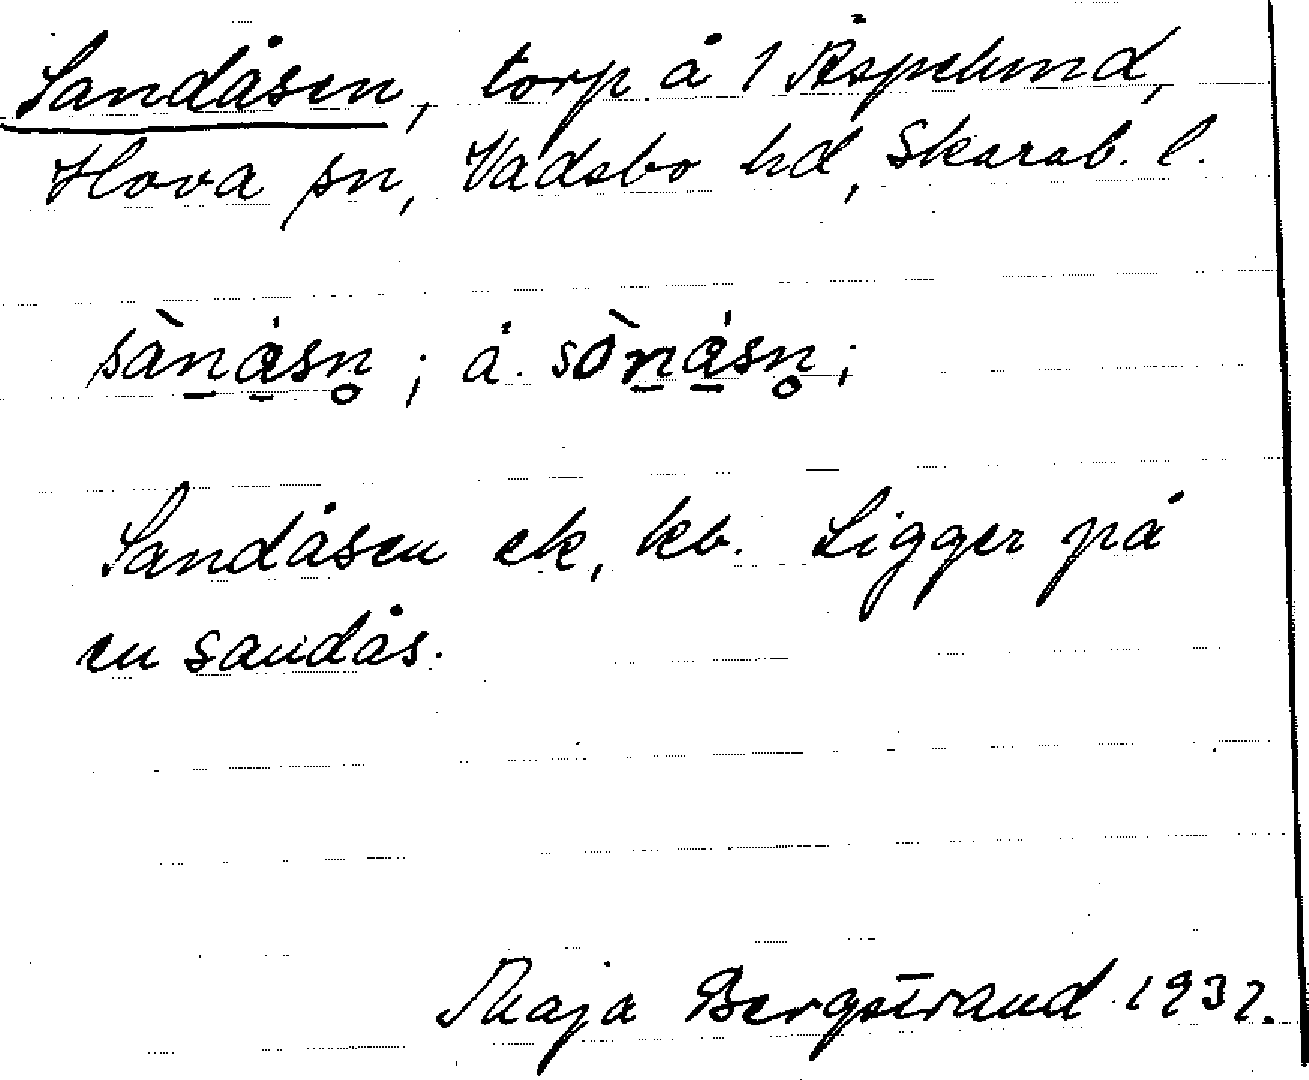 Sandåsen, torp å 1 Äspelund,
Hova sn, Vadsbo hd, Skarab. l.
sànåsn̥; å. sònåsn̥;
Sandåsen ek, kb. Ligger på
en sandås.
Maja Bergstrand 1937.